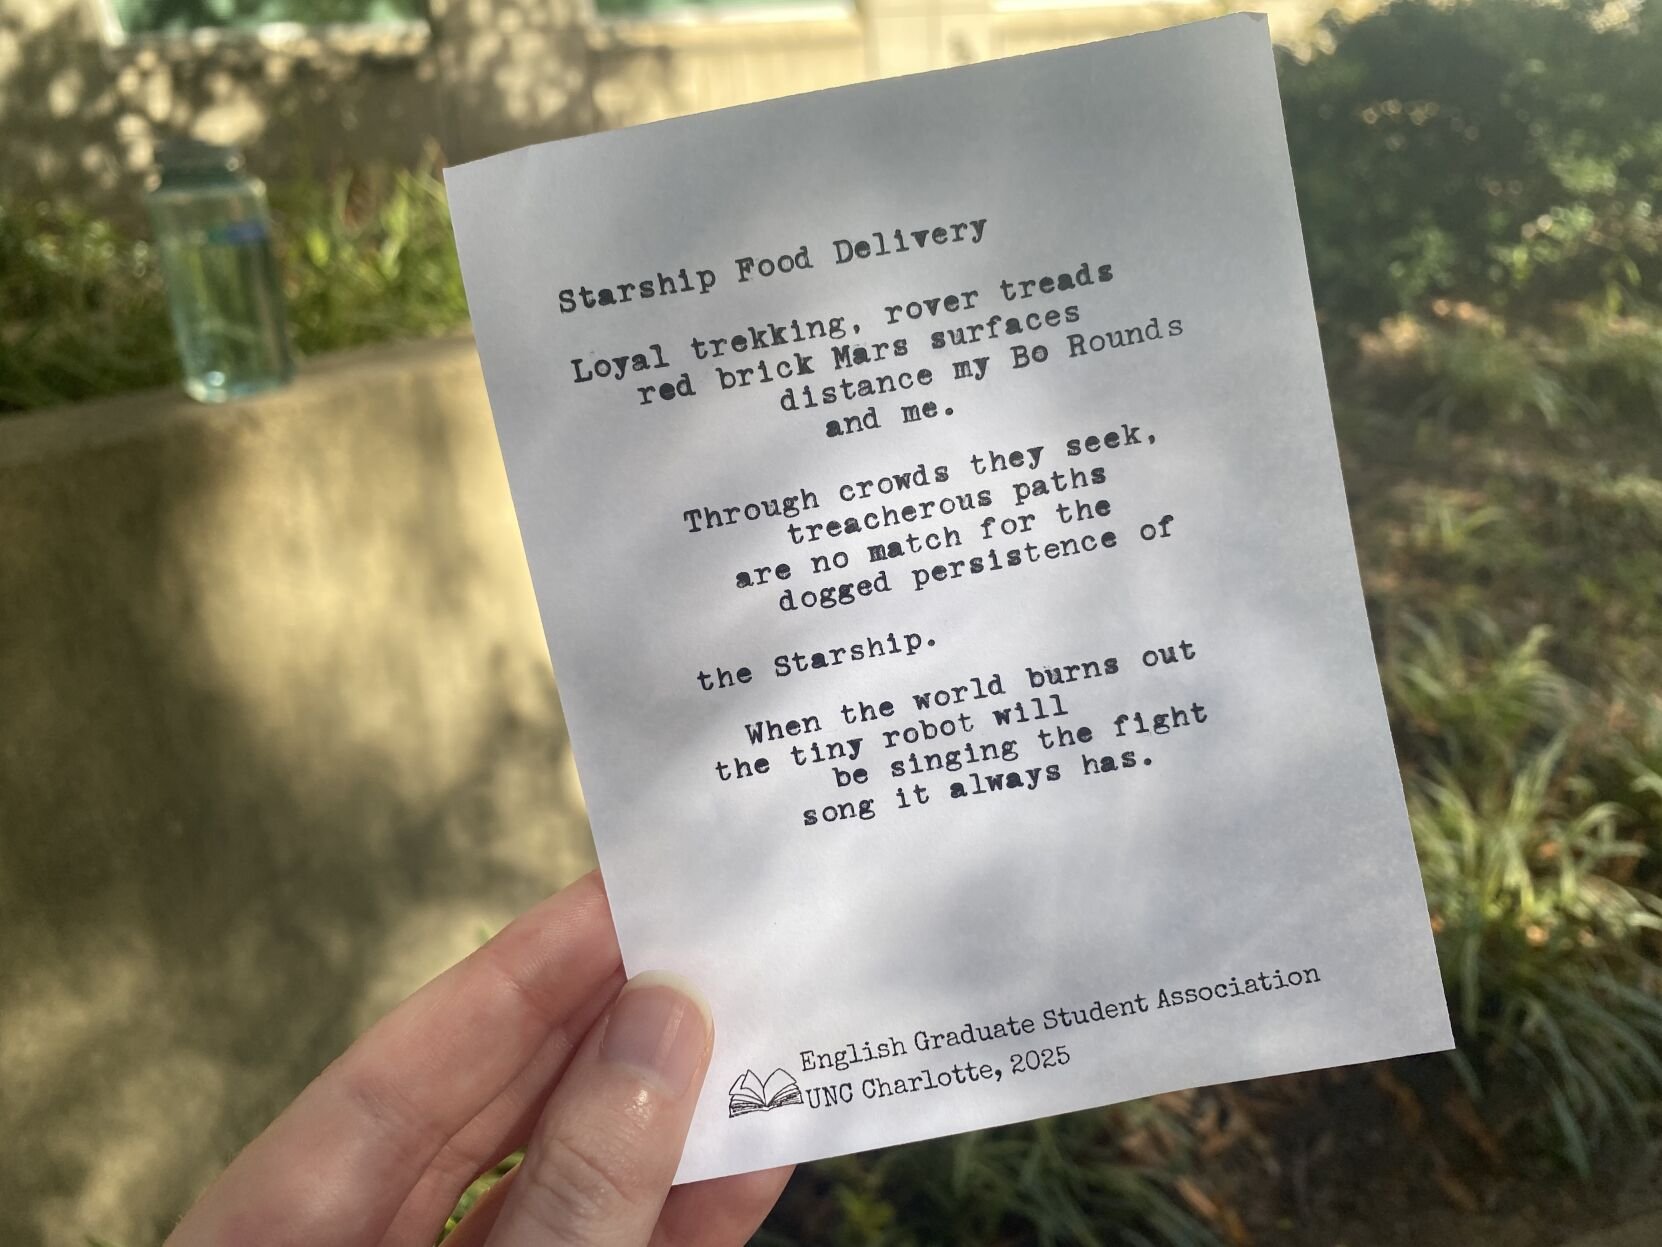 Starship Food Delivery
Loyal trekking, rover treads
red brick Mars surfaces
distance my Bo Rounds
and me.
Through crowds they seek,
treacherous paths
are no match for the
dogged persistence of
the Starship.
When the world burns out
the tiny robot will
be singing the fight
song it always has.
English Graduate Student Association
UNC Charlotte, 2025